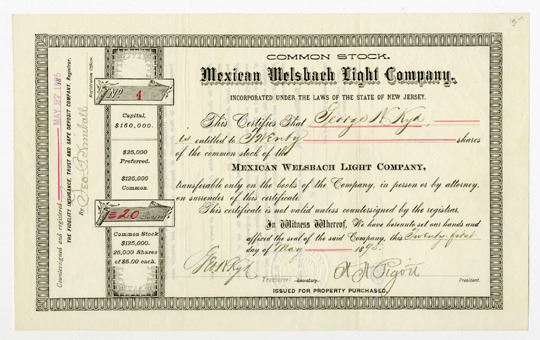 COMMON STOCK.
Mexican Welsbach Light Company,
INCORPORATED UNDER THE LAWS OF THE STATE OF NEW JERSEY.
This Certifies That George W. Kyd
is entitled to Twenty shares
of the common stock of the
MEXICAN WELSBACH LIGHT COMPANY,
transferable only on the books of the Company, in person or by attorney,
on surrender of this certificate.
This certificate is not valid unless countersigned by the registrar.
In Witness Whereof, We have hereunto set our hands and
affixed the seal of the said Company, this Twenty-first
day of May 1895
Geo W Kyd
Treasurer
President.
ISSUED FOR PROPERTY PURCHASED.
No 4
Capital,
$150,000.
$25,000
Preferred.
$125,000
Common.
20
Common Stock
$125,000.
25,000 Shares
of $5.00 each.
Countersigned and registered, MAY 27 1895
THE FIDELITY INSURANCE, TRUST AND SAFE DEPOSIT COMPANY, Registrar,
By
Registration Officer.